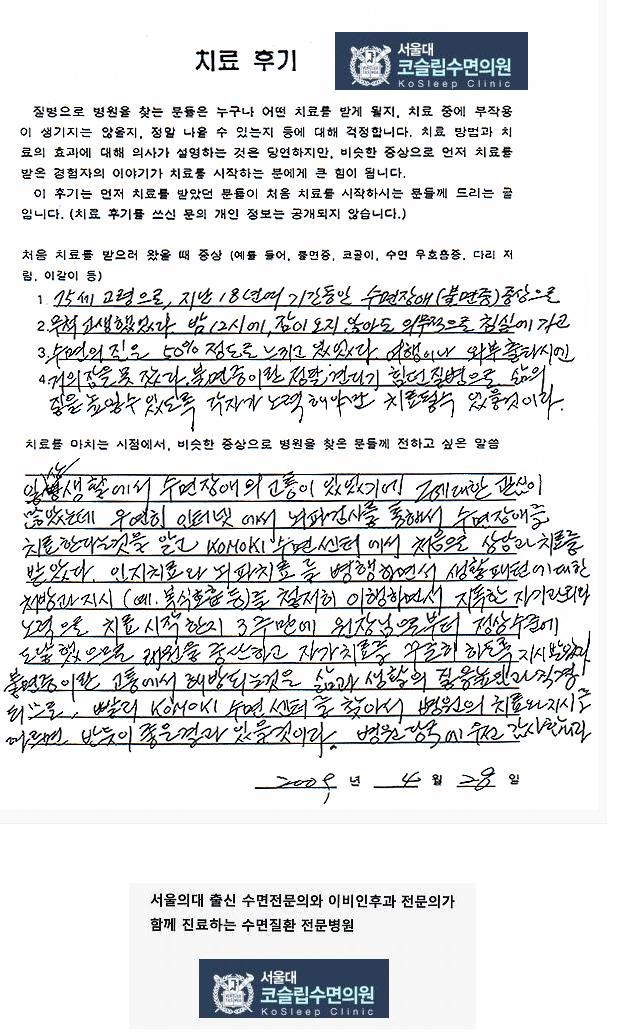 치료 후기
서울대
코슬립수면의원
KoSleep Clinic
질병으로 병원을 찾는 분들은 누구나 어떤 치료를 받게 될지, 치료 중에 부작용
이 생기지는 않을지, 정말 나을 수 있는지 등에 대해 걱정합니다. 치료 방법과 치
료의 효과에 대해 의사가 설명하는 것은 당연하지만, 비슷한 증상으로 먼저 치료를
받은 경험자의 이야기가 치료를 시작하는 분에게 큰 힘이 됩니다.
이 후기는 먼저 치료를 받았던 분들이 처음 치료를 시작하시는 분들께 드리는 글
입니다. (치료 후기를 쓰신 분의 개인 정보는 공개되지 않습니다.)
처음 치료를 받으러 왔을 때 증상 (예를 들어, 불면증, 코골이, 수면 무호흡증, 다리 저
림, 이갈이 등)
1. 75세 고령으로, 지난 18년여 기간동안 수면장애(불면증)증상으로
2. 무척 고생했었다. 밤 12시에, 잠이 오지 않아도 의무적으로 침실에 가고
3. 수면의 질은 50% 정도로 느끼고 있었다. 여행이나 외부출타시엔
4. 거의 잠을 못 잤다. 불면증이란 정말, 견디기 힘든 질병으로 삶의
질을 높일수 있도록 각자가 노력해야만 치료될수 있을것이라.
치료를 마치는 시점에서, 비슷한 증상으로 병원을 찾은 분들께 전하고 싶은 말씀
일상생활에서 수면장애의 고통이 있었기에 그에대한 관심이
많았는데 우연히 인터넷에서 뇌파검사를 통해서 수면장애를
치료한다는것을 알고 KOMOKI 수면센터에서 처음으로 상담과 치료를
받았다. 인지치료와 뇌파치료를 병행하면서 생활패턴에 대한
처방과 지시 (예. 복식호흡 등)를 철저히 이행하면서 지독한 자기관리와
노력으로 치료 시작한지 3주만에 원장님으로부터 정상수준에
도달했으므로 내원을 중단하고 자가치료를 꾸준히 하도록 지시 받았다
불면증이란 고통에서 해방되는것은 삶과 생활의 질을높엔과 직결
되므로, 빨리 KOMOKI 수면센터를 찾아서 병원의 치료와 지시를
따르면 반듯이 좋은결과 있을것이라. 병원 당국에 우선 감사합니다
2009년 4월 28일
서울의대 출신 수면전문의와 이비인후과 전문의가
함께 진료하는 수면질환 전문병원
서울대
코슬립수면의원
KoSleep Clinic